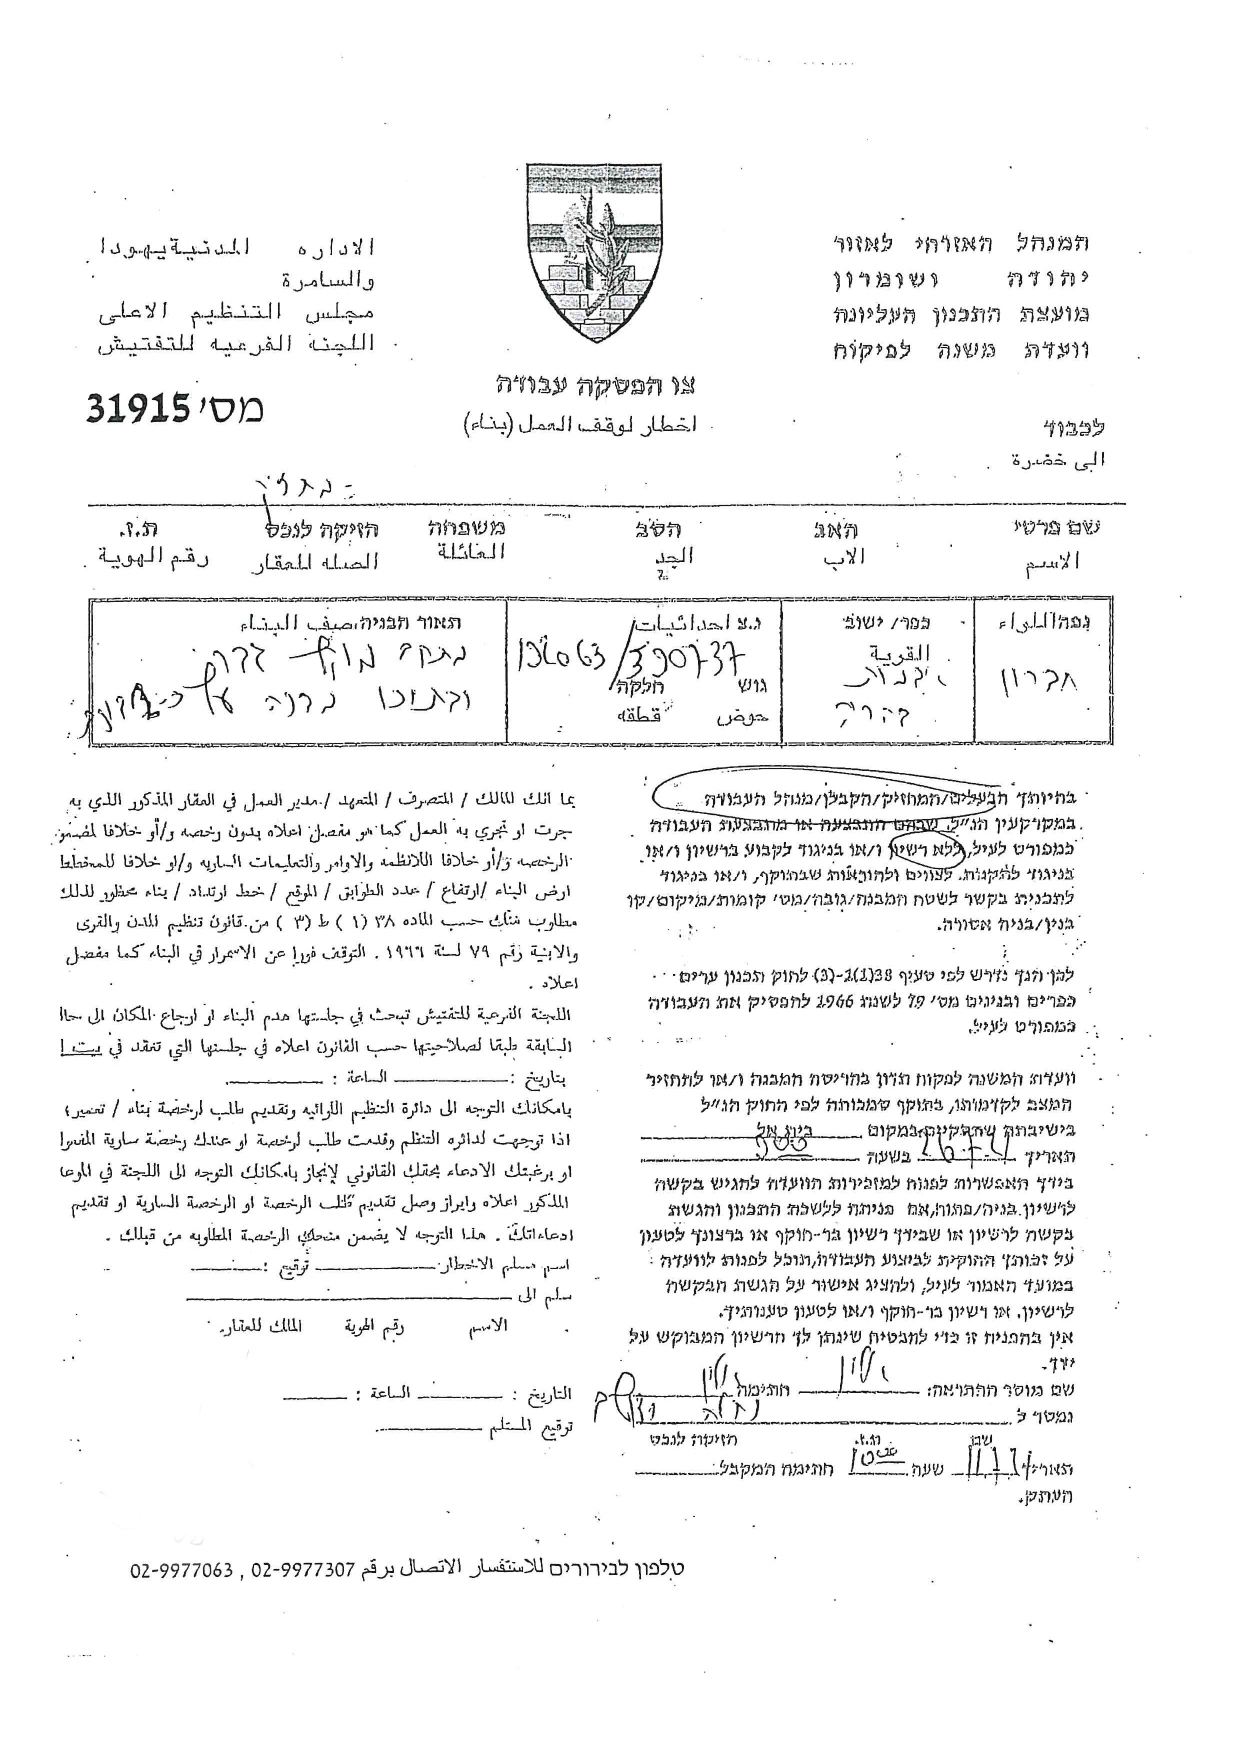 המנהל האזרחי לאזור
יהודה ושומרון
מועצת התכנון העליונה
וועדת משנה לפיקוח
الاداره المدنية يهودا
والسامرة
مجلس التنظيم الاعلى
اللجنة الفرعيه للتفتيش
צו הפסקה עבודה
اخطار لوقف العمل (بناء)
מס' 31915
לכבוד
الى حضرة
שם פרטי האב הסב משפחה הזיקה לנכס ת.ז.
الاسم الاب الجد العائلة الصله للعقار رقم الهوية
נפה/اللواء כפר/ישוב القرية נ.צ احداثيات גוש חלקה حوض قطعه תאור הבניה,صيف البناء
חברון
136063/590737
בהיותך הבעלים/המחזיק/הקבלן/מנהל העבודה
במקרקעין הנ"ל, שבהם התבצעה או מתבצעת העבודה
כמפורט לעיל, ללא רשיון ו/או בניגוד לקבוע ברשיון ו/או
בניגוד לתקנות, לצווים ולהוראות שבתוקף, ו/או בניגוד
לתכנית בקשר לשטח המבנה/גובה/מס' קומות/מיקום/קו
בנין/בניה אסורה.
לכן הנך נדרש לפי סעיף 38(1)1-(3) לחוק תכנון ערים
כפרים ובנינים מס' 79 לשנת 1966 להפסיק את העבודה
כמפורט לעיל.
וועדת המשנה לפקוח תדון בהריסת המבנה ו/או להחזיר
המצב לקדמותו, בתוקף סמכותה לפי החוק הנ"ל
בישיבתה שתתקיים במקום בית אל
תאריך בשעה
בידך האפשרות לפנות למזכירות הוועדה להגיש בקשה
לרשיון בניה/פתוח, אם פניתה ללשכת התכנון והגשת
בקשה לרשיון או שבידך רשיון בר-תוקף או ברצונך לטעון
על זכותך החוקית לביצוע העבודה, תוכל לפנות לוועדה
במועד האמור לעיל, ולהציג אישור על הגשת הבקשה
לרשיון, או רשיון בר-תוקף ו/או לטעון טענותיך.
אין בהפניה זו כדי להבטיח שינתן לך הרשיון המבוקש על
ידך.
שם מוסר ההתראה: חתימה
נמסר ל
שם ת.ז. הזיקה לנכס
תאריך שעה חתימה המקבל:
העתק.
بما انك المالك / المتصرف / المتعهد / مدير العمل في العقار المذكور الذي به
جرت او تجري به العمل كما هو مفصل اعلاه بدون رخصه و/أو خلافا لمضمون
الرخصه و/أو خلافا للانظمه والاوامر والتعليمات الساريه و/او خلافا للمخطط
ارض البناء /ارتفاع / عدد الطوابق / الموقع / خط ارتداد / بناء محظور لذلك
مطلوب منك حسب الماده ٣٨ (١) ط (٣) من قانون تنظيم المدن والقرى
والابنية رقم ٧٩ لسنة ١٩٦٦ . التوقف فورا عن الاسمرار في البناء كما مفصل
اعلاه .
اللجنة الفرعية للتفتيش تبحث في جلستها هدم البناء او ارجاع المكان الى حالا
السابقة طبقا لصلاحيتها حسب القانون اعلاه في جلستها التي تنعقد في بيت ا
بتاريخ : الساعة :
بامكانك التوجه الى دائرة التنظيم اللوائيه وتقديم طلب لرخصة بناء / تعمير ؛
اذا توجهت لدائره التنظم وقدمت طلب لرخصة او عندك رخصة سارية المفعوا
او برغبتك الادعاء بحقك القانوني لإنجاز بامكانك التوجه الى اللجنة في الموعا
المذكور اعلاه وابراز وصل تقديم طلب الرخصة او الرخصة السارية او تقديم
ادعاءاتك . هذا التوجه لا يضمن منحك الرخصة المطلوبه من قبلك .
اسم مسلم الاخطار: توقيع :
سلم الى
الاسم رقم الهوية المالك للعقار.
التاريخ : الساعة :
توقيع المستلم
טלפון לבירורים للاستفسار الاتصال برقم 02-9977307 , 02-9977063